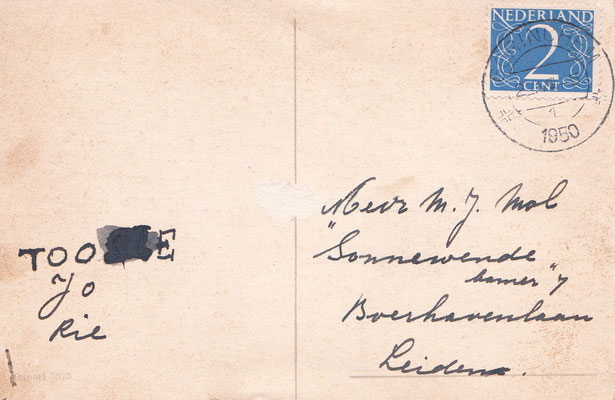 NEDERLAND
2
CENT
1
1950
Mevr M. J. Mol
"Sonnewende"
kamer 7
Boerhavenlaan
Leiden.
TOO E
Jo
Rie